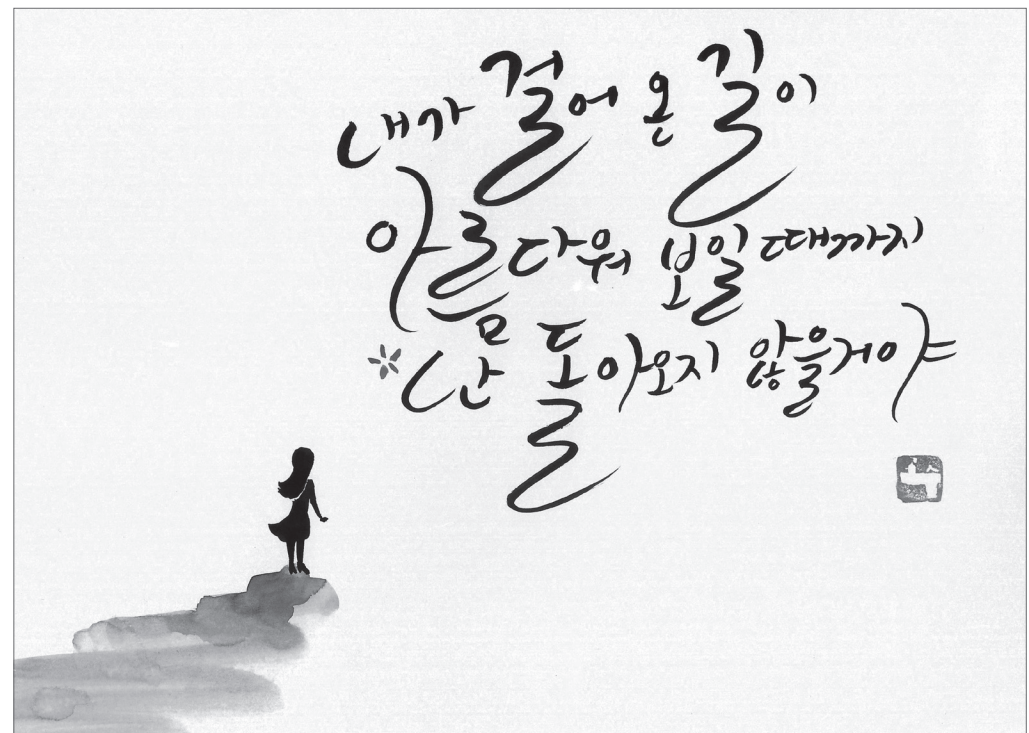 내가 걸어 온 길이
아름다워 보일 때까지
난 돌아오지 않을거야